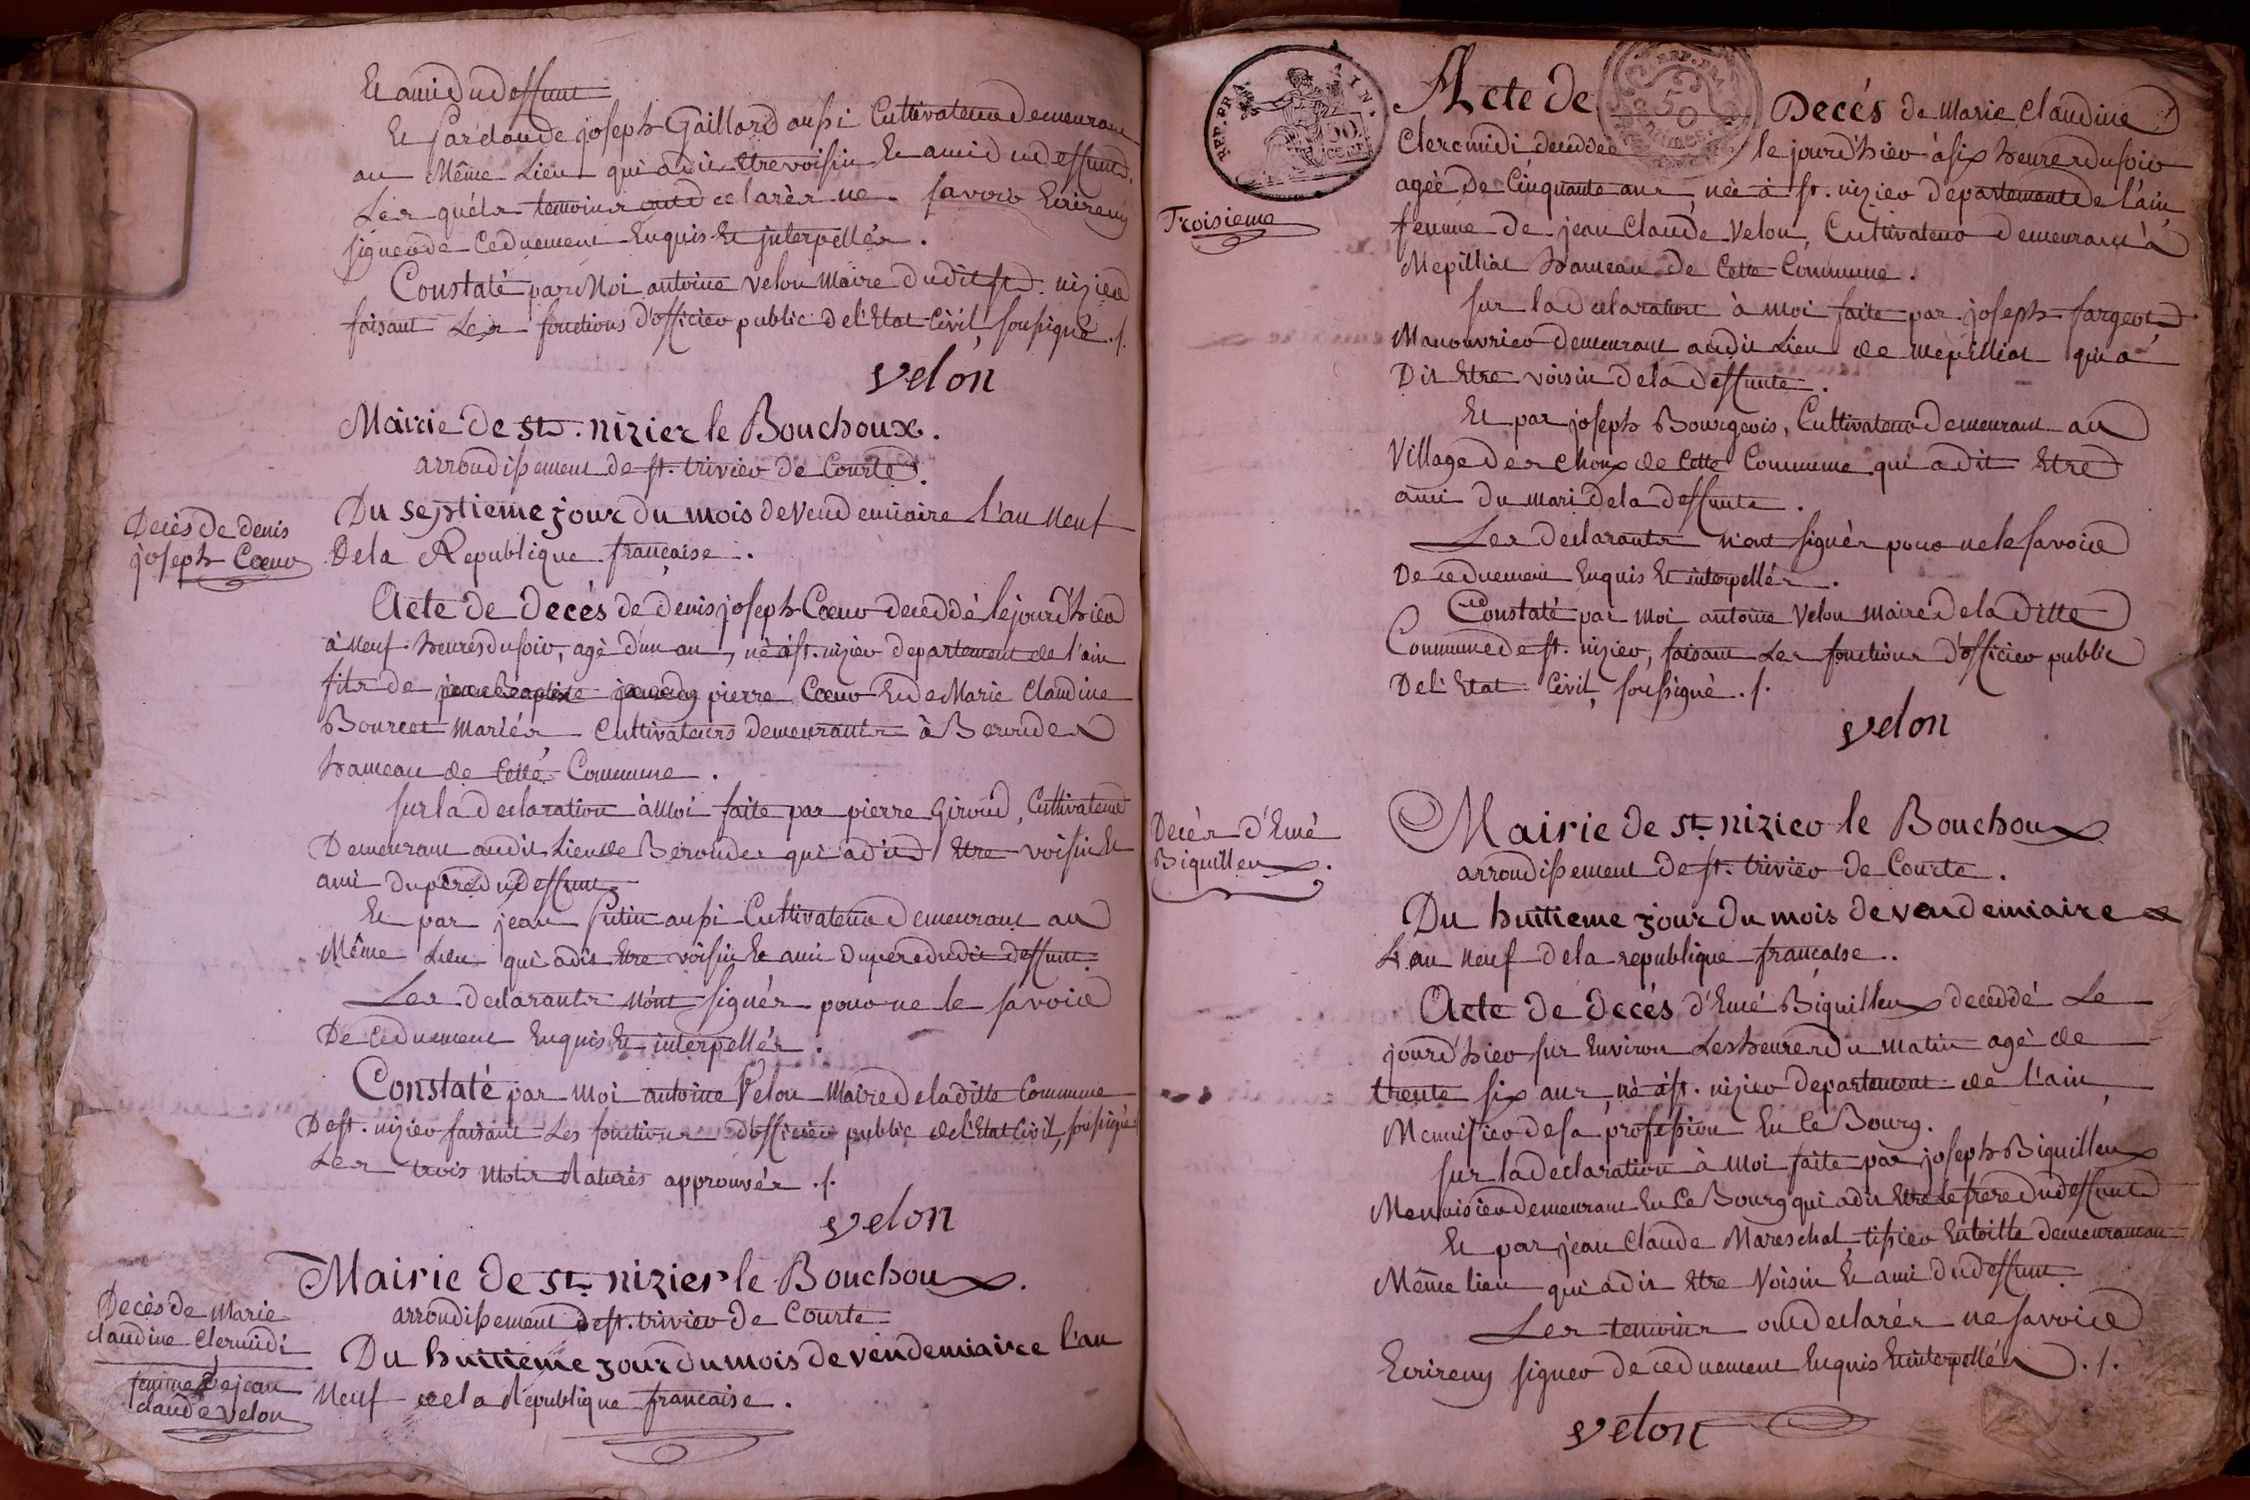 Et ami du deffunt
Et par claude joseph Gaillard aussi Cultivateur Demeurant
au Même Lieu qui a dit Etre voisin Et ami du deffunt.
Les quéls temoins ont declarès ne savoir Ecrire ny
signer de Ceduement Enquis Et jnterpellés.
Constaté par Moi antoine velon Maire dudit St. nizier
faisant Les fonctions d'officier public de l'Etat Civil, soussigné ./.
velon
Mairie de St. nizier le Bouchoux.
arrondissement de st. trivier de Courte.
Decès de denis
joseph Cœur
Du septieme jour du mois de vendemiaire l'an Neuf
De la Republique francaise.
Acte de Decés de denis joseph Cœur deceddé le jourd'hier
à Neuf heures du soir, agé d'un an, né à st. nizier departement de l'ain
fils de pierre Cœur Et de Marie Claudine
Bourcet Mariés Cultivateurs demeurants à Berondes
hameau de Cette Commune.
sur la declaration à Moi faite par pierre Giroud, Cultivateur
Demeurant audit Lieu de Berondes qui a dit Etre voisin Et
ami du père du deffunt
Et par jean Putin aussi Cultivateur Demeurant au
Même Lieu qui a dit Etre voisin Et ami du père dudit deffunt.
Les declarants N'ont signés pour ne le savoir
De Ceduement Enquis Et interpellés.
Constaté par Moi antoine Velon Maire de la ditte Commune
De st. nizier faisant Les fonctions d'officier public de l'Etat Civil, soussigné
Les trois Mots Raturés approuvés ./.
velon
Mairie de St. nizier le Bouchoux.
arrondissement de st. trivier de Courte
Decès de Marie
claudine Clermidi
femme de jean
claude velon
Du huitieme jour du mois de vendemiaire l'an
Neuf de la République francaise.
REP. FRA.
IN.
50
CENT.
REP. FRA.
50
Centimes.
Troisieme
Acte de Decés de Marie Claudine
Clermidi deceddée le jourd'hier à six heures du soir
agée de Cinquante ans, née à st. nizier departement de l'ain,
femme de jean Claude Velon, Cultivateur demeurant à
Mepilliat hameau de Cette Commune.
sur la declaration à Moi faite par joseph fargeot
Manouvrier demeurant audit Lieu de Mepilliat qui a
Dit Etre voisin de la deffunte.
Et par joseph Bourgeois, Cultivateur demeurant au
Village des Choux de Cette Commune qui a dit Etre
ami du mari de la deffunte.
Les declarants N'ont signés pour ne le savoir
De ceduement Enquis Et interpellés.
Constaté par Moi antoine Velon Maire de la ditte
Commune de st. nizier, faisant Les fonctions d'officier public
De l'Etat Civil, soussigné ./.
velon
Decés d'Emé
Biquilleux.
Mairie de St. nizier le Bouchoux
arrondissement de st. trivier de Courte.
Du huitieme jour du mois de vendemiaire
L'an Neuf de la republique francaise.
Acte de Decés d'Emé Biquilleux deceddé Le
jourd'hier sur Environ Les heures du matin agé de
trente six ans, né à st. nizier departement de l'ain,
Menuisier de sa profession En Ce Bourg.
sur la declaration à Moi faite par joseph Biquilleux
Menuisier demeurant En Ce Bourg qui a dit Etre le frere du deffunt
Et par jean Claude Mareschal, tissier En toille demeurant au
Même lieu qui a dit Etre Voisin Et ami du deffunt
Les temoins ont declarés ne savoir
Ecrire ny signer de ceduement Enquis Et interpellés ./.
velon